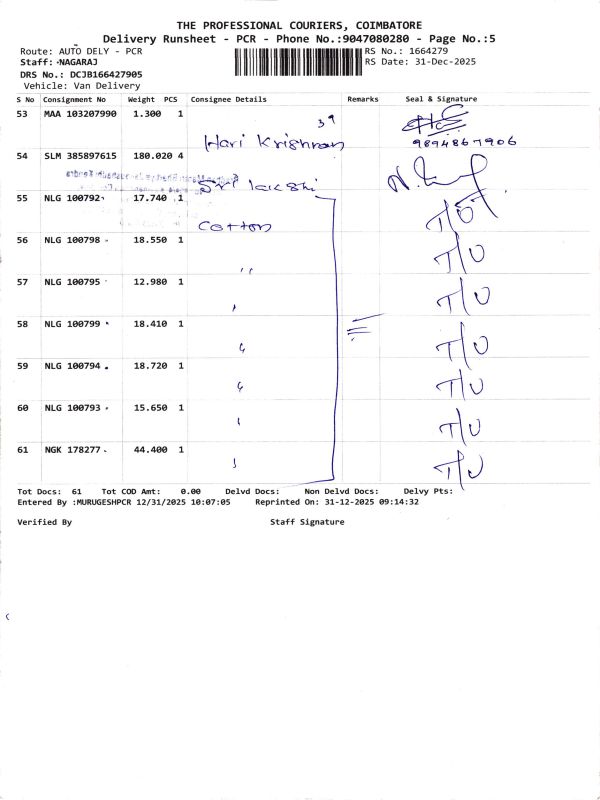 THE PROFESSIONAL COURIERS, COIMBATORE
Delivery Runsheet - PCR - Phone No.:9047080280 - Page No.:5
Route: AUTO DELY - PCR RS No.: 1664279
Staff: NAGARAJ RS Date: 31-Dec-2025
DRS No.: DCJB166427905
Vehicle: Van Delivery
S No Consignment No Weight PCS Consignee Details Remarks Seal & Signature
53 MAA 103207990 1.300 1
39
Hari Krishnan 9894867906
54 SLM 385897615 180.020 4
Sri lakshi
55 NLG 100792 17.740 1
Cotton
56 NLG 100798 18.550 1 T/U
57 NLG 100795 12.980 1 T/U
58 NLG 100799 18.410 1 T/U
59 NLG 100794 18.720 1 T/U
60 NLG 100793 15.650 1 T/U
61 NGK 178277 44.400 1 T/U
Tot Docs: 61 Tot COD Amt: 0.00 Delvd Docs: Non Delvd Docs: Delvy Pts:
Entered By :MURUGESHPCR 12/31/2025 10:07:05 Reprinted On: 31-12-2025 09:14:32
Verified By Staff Signature